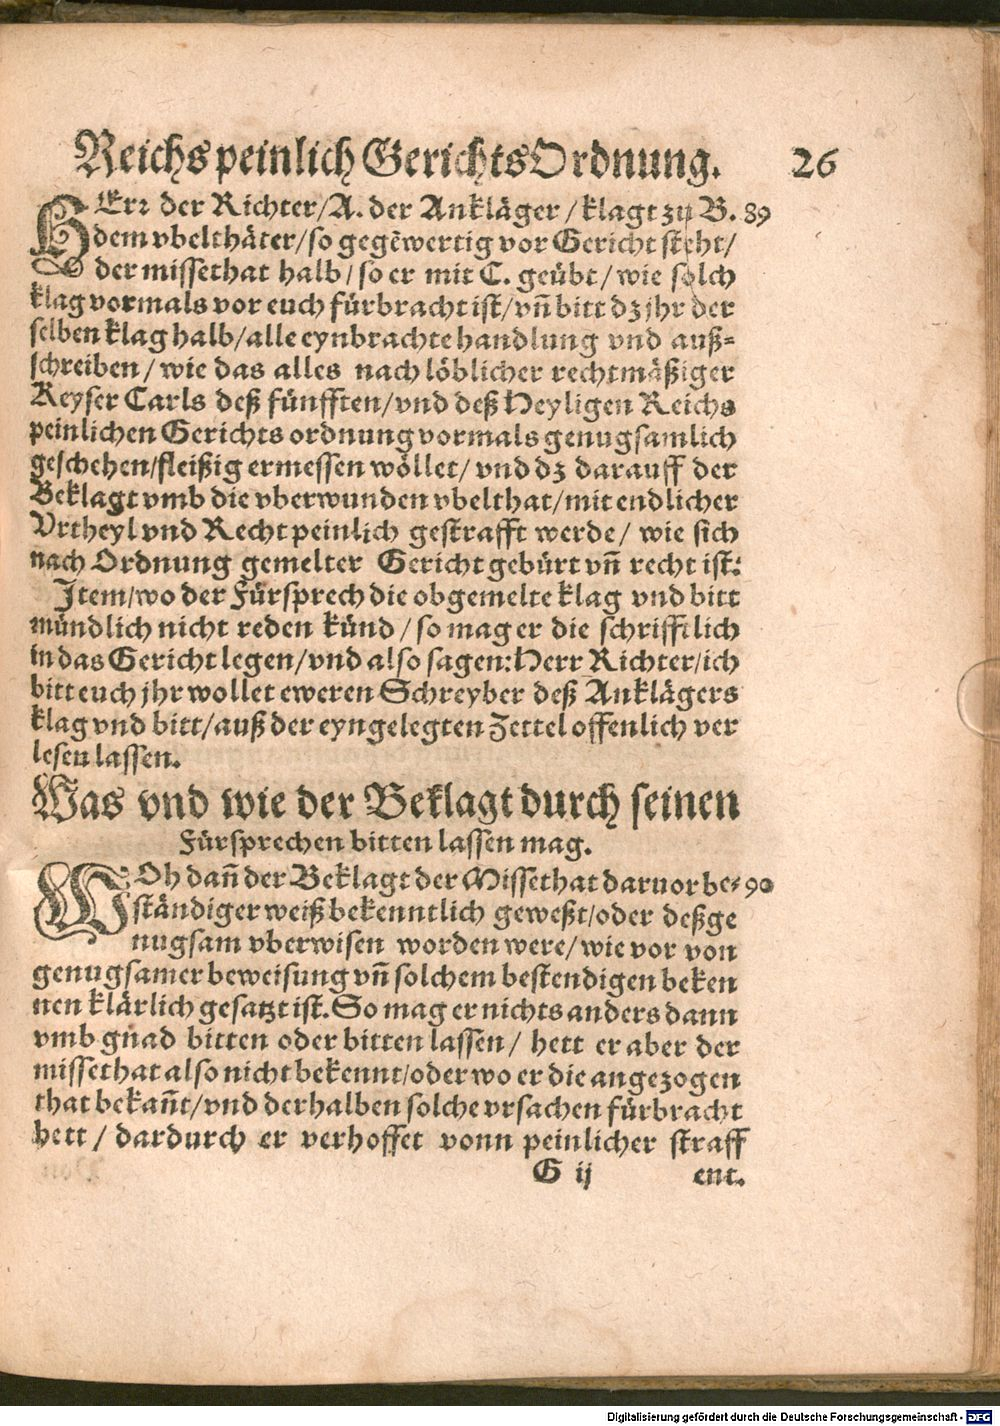 Reichs peinlich GerichtsOrdnung. 26
HErr der Richter/A. der Ankläger/klagt zu B. 89
dem vbelthäter/so gegēwertig vor Gericht steht/
der missethat halb/so er mit C. geübt/wie solch
klag vormals vor euch fürbracht ist/vñ bitt dz jhr der
selben klag halb/alle eynbrachte handlung vnd auß=
schreiben/wie das alles nach löblicher rechtmäßiger
Keyser Carls deß fünfften/vnd deß Heyligen Reichs
peinlichen Gerichts ordnung vormals genugsamlich
geschehen/fleißig ermessen wöllet/vnd dz darauff der
Beklagt vmb die vberwunden vbelthat/mit endlicher
Vrtheyl vnd Recht peinlich gestrafft werde/wie sich
nach Ordnung gemelter Gericht gebürt vñ recht ist:
Item/wo der Fürsprech die obgemelte klag vnd bitt
mündlich nicht reden künd/so mag er die schrifftlich
in das Gericht legen/vnd also sagen: Herr Richter/ich
bitt euch jhr wollet eweren Schreyber deß Anklägers
klag vnd bitt/auß der eyngelegten Zettel offenlich ver
lesen lassen.
Was vnd wie der Beklagt durch seinen
Fürsprechen bitten lassen mag.
WOh dañ der Beklagt der Missethat daruor be= 90
ständiger weiß bekenntlich geweßt/oder deßge
nugsam vberwisen worden were/wie vor von
genugsamer beweisung vñ solchem bestendigen beken
nen klärlich gesatzt ist. So mag er nichts anders dann
vmb gnad bitten oder bitten lassen/hett er aber der
missethat also nicht bekennt/oder wo er die angezogen
that bekañt/vnd derhalben solche vrsachen fürbracht
hett/dardurch er verhoffet vonn peinlicher straff
G ij ent.
Digitalisierung gefördert durch die Deutsche Forschungsgemeinschaft - DFG